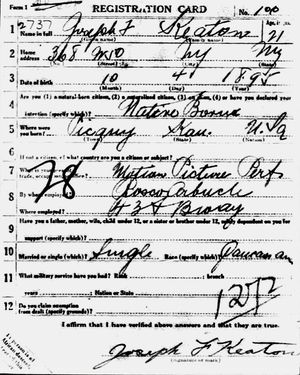 Form 1 REGISTRATION CARD No. 100
2737 Joseph F Keaton 21
Name in full
Home address 368 NY NY
Date of birth 10 4 1895
(Month) (Day) (Year)
Are you (1) a natural-born citizen, (2) a naturalized citizen, (3) an alien, (4) or have you declared your
intention (specify which)? Native Born
Where were you born? Picquay Kan. U.S.A
If not a citizen, of what country are you a citizen or subject?
28
Motion Picture Perf
By whom employed? Roscoe Arbuckle
Where employed? Broway
Have you a father, mother, wife, child under 12, or a sister or brother under 12, solely dependent on you for
support (specify which)?
Married or single (which)? Single Race (specify which)? Caucasian
What military service have you had? Rank branch
years Nation or State
Do you claim exemption from draft (specify grounds)?
I affirm that I have verified above answers and that they are true.
Joseph F Keaton
(Signature or mark)